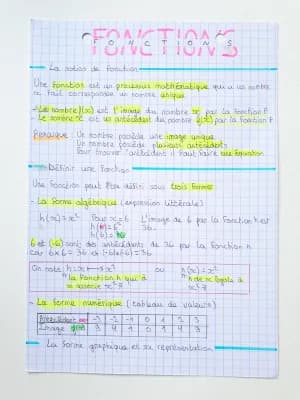 FONCTIONS
FONCTIONS
La notion de fonction
Une fonction est un processus mathématique qui à un nombre
x fait correspondre un nombre unique.
- Le nombre f(x) est l'image du nombre x par la fonction f
- Le nombre x est un antécédent du nombre f(x) par la fonction f
Remarque: Un nombre possède une image unique.
Un nombre possède plusieurs antécédents
Pour trouver l'antécédent il faut faire une équation
Définir une fonction
Une fonction peut être défini sous trois formes
- La forme algébrique (expression littérale)
h(x) = x² Pour x = 6 L'image de 6 par la fonction h est
h(6) = 6² 36.
h(6) = 36
6 et (-6) sont des antécédents de 36 par la fonction h
car 6×6 = 36 et (-6)×(-6) = 36
On note h: x ↦ x² ou h(x) = x²
"la fonction h qui à "h de x égale à
x associe x²" x²"
- La forme numérique (tableau de valeurs)
Antécédent x -3 -2 -1 0 1 2 3
Image 9 4 1 0 1 4 9
- La forme graphique et sa représentation